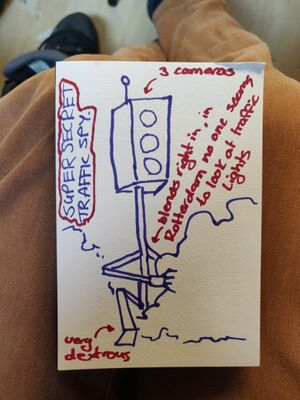 3 cameras
SUPER SECRET
TRAFFIC SPY.
blends right in, in
Rotterdam no one seems
to look at traffic
lights
very
dextrous